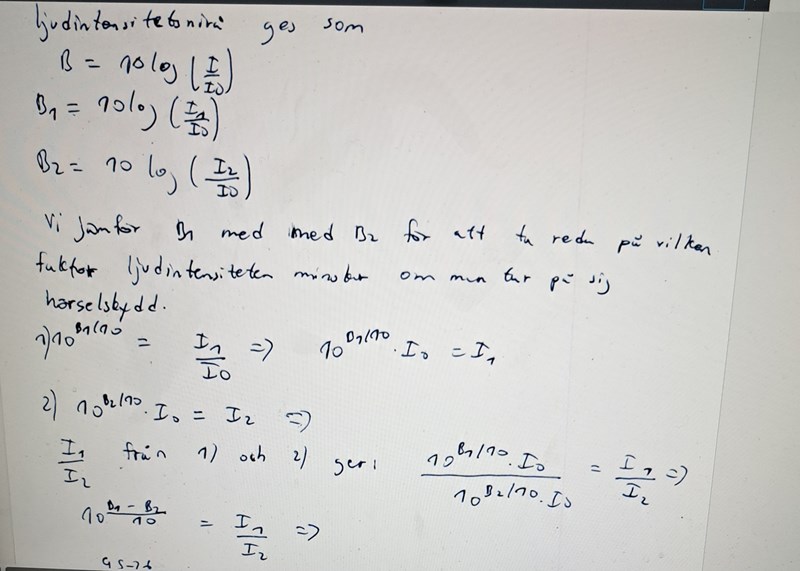 ljudintensitetsnivå ges som
B = 10 log (I/I0)
B1 = 10log (I1/I0)
B2 = 10 log (I2/I0)
Vi jämför B1 med med B2 för att ta reda på vilken
faktor ljudintensiteten minskar om man tar på sig
hörselskydd.
1) 10^(B1/10) = I1/I0 => 10^(B1/10) · I0 = I1
2) 10^(B2/10) · I0 = I2 =>
I1/I2 från 1) och 2) ger: (10^(B1/10) · I0)/(10^(B2/10) · I0) = I1/I2 =>
10^((B1 - B2)/10) = I1/I2 =>